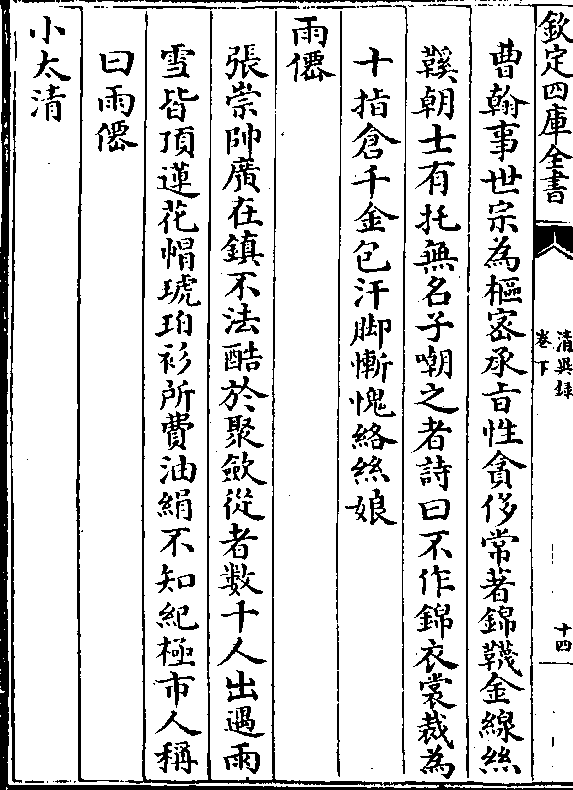 欽定四庫全書
清異録
卷下
十四
曹翰事世宗為樞宻承㫖性貪侈常著錦韈金線絲
鞵朝士有托無名子嘲之者詩曰不作錦衣裳裁為
十指倉千金包汗脚慚愧絡絲娘
雨僊
張崇帥廣在鎮不法酷於聚斂從者數千人出遇雨
雪皆頂蓮花帽琥珀衫所費油絹不知紀極市人稱
曰雨僊
小太清